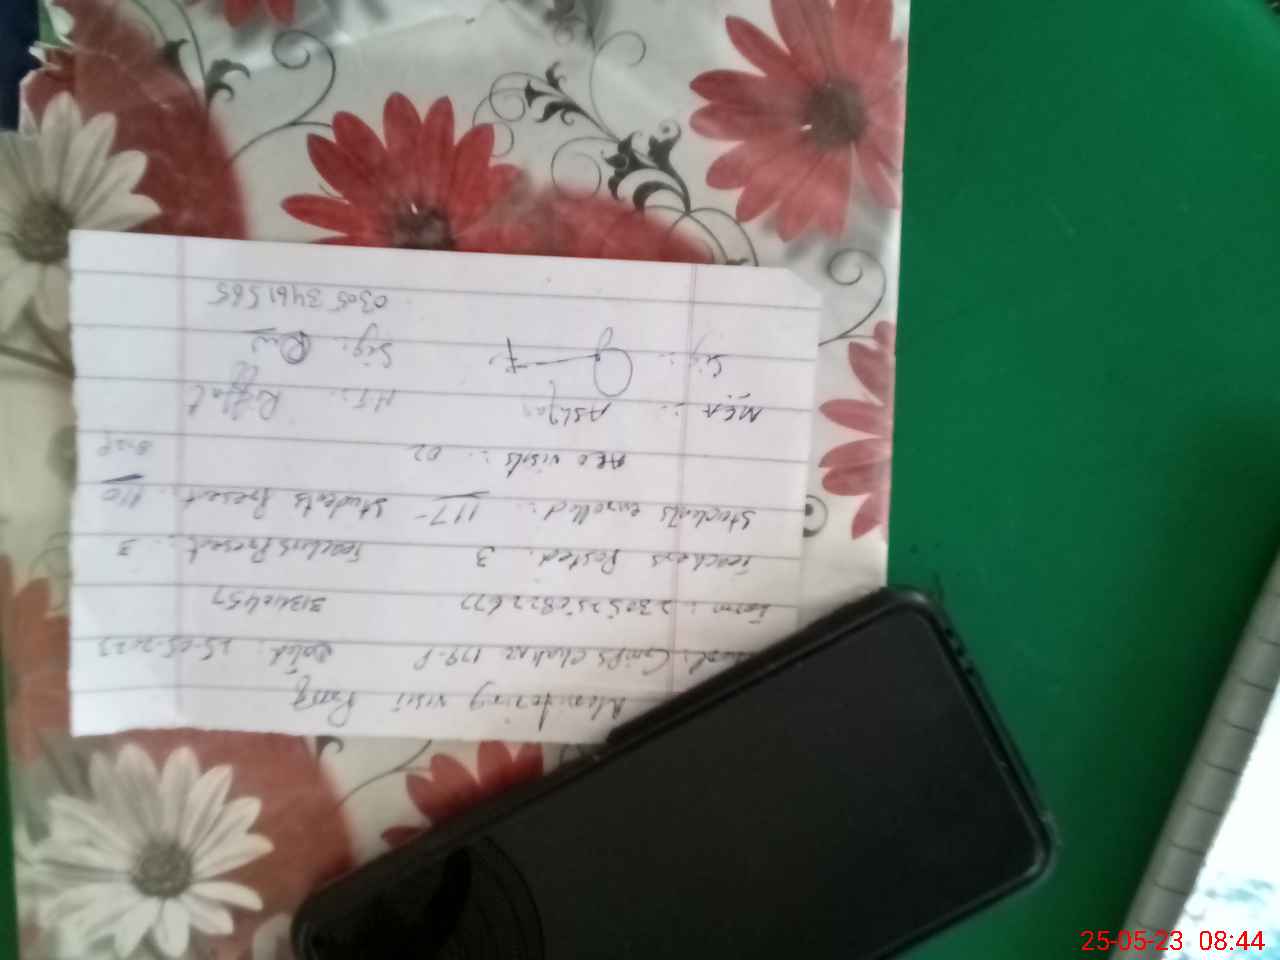 Monitoring visit Proof
School: GMPS Chak no 179-P Dated: 25-05-2023
Form: 2305250822677 31340457
Teachers Posted: 3 Teachers Present: 3
Students enrolled: 117 Students Present: 110
AEO visits: 02
MEA: Asghar H.T: Riffat
Sig: Sig:
0305 3461565
25-05-23 08:44